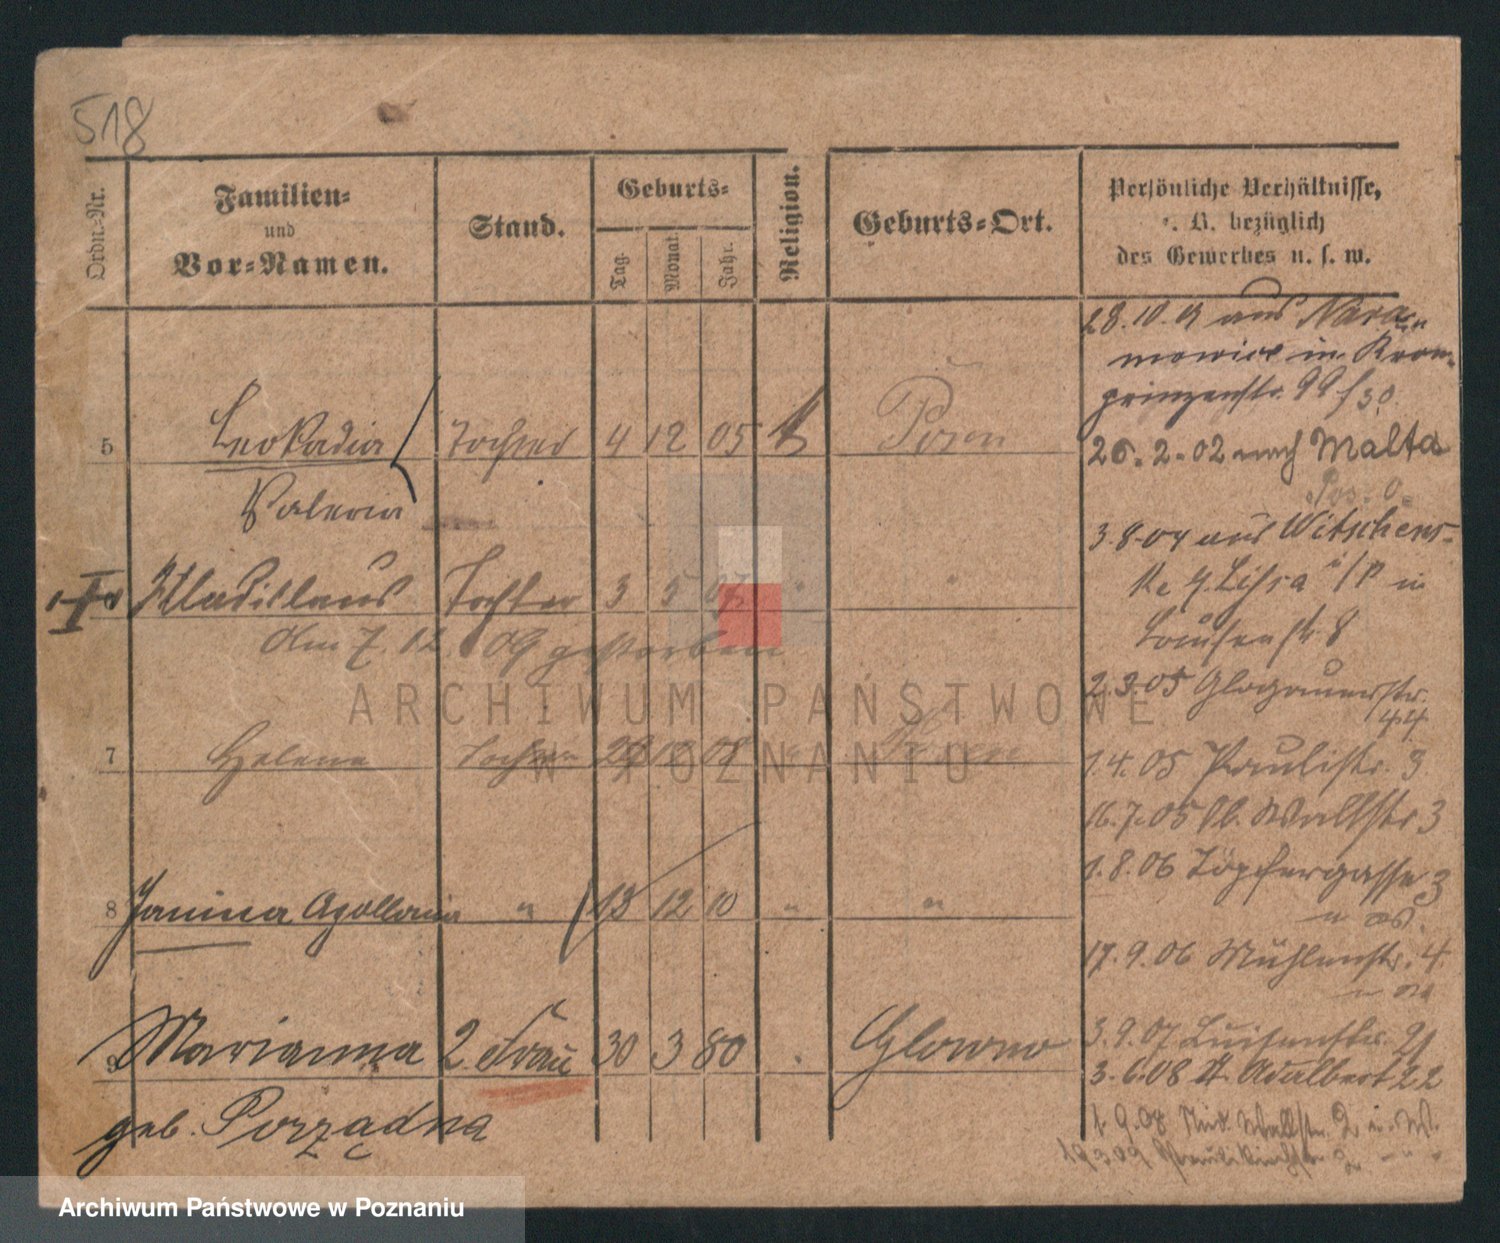 518
Ordn.-Nr.
Familien-
und
Vor-Namen.
Stand.
Geburts-
Tag.
Monat.
Jahr.
Religion.
Geburts-Ort.
Persönliche Verhältnisse,
z. B. bezüglich
des Gewerbes u. s. w.
28.10.01 aus Nara-
mowice in Kron-
prinzenstr. 99/30
5 Leokadia Tochter 4 12 05 Posen
26.2.02 nach Malta
Valeria
3.8.04 aus Witschens-
ke b. Lissa i/P in
Wladislaus Tochter 3 5 "
Louisenstr. 8
am 7. 12. 09 gestorben
2.3.05 Glogauerstr.
44
7 Helene Tochter 12 08 "
1.4.05 Paulistr. 3
16.7.05 Wallstr 3
1.8.06 Töpfergasse 3
8 Janina Apollonia " 13 12 10 " "
17.9.06 Mühlenstr. 4
9 Marianna 2. Frau 30 3 80 " Glowno
3.9.07 Luisenstr. 21
3.6.08 St. Adalbert 22
geb. Porządna
1.9.08 Wallstr. 2
19309 Paulikirchstr
ARCHIWUM PAŃSTWOWE
W POZNANIU
Archiwum Państwowe w Poznaniu